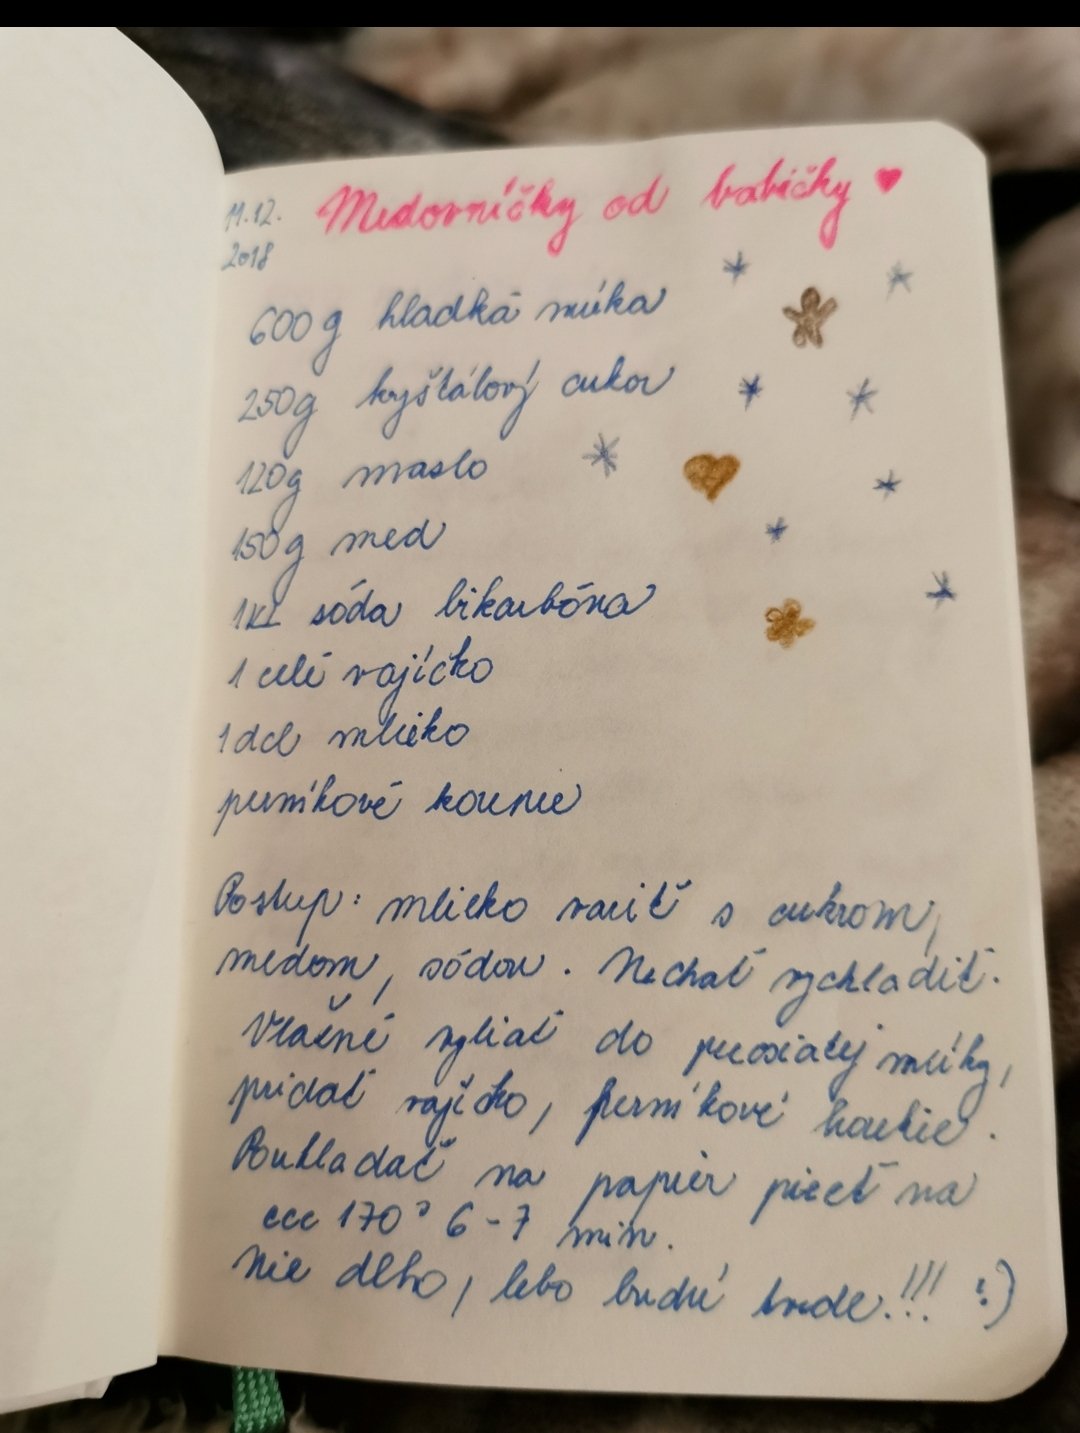 11.12.
2018
Medovníčky od babičky ♥
600g hladká múka
250g kryštálový cukor
120g maslo
150g med
1KL sóda bikarbóna
1 celé vajíčko
1 dcl mlieko
perníkové korenie
Postup: mlieko variť s cukrom,
medom, sódou. Nechať vychladiť.
Vlažné vyliať do preosiatej múky,
pridať vajíčko, perníkové korenie.
Poukladať na papier piecť na
ccc 170° 6-7 min.
Nie dlho, lebo budú tvrdé.!!! :)